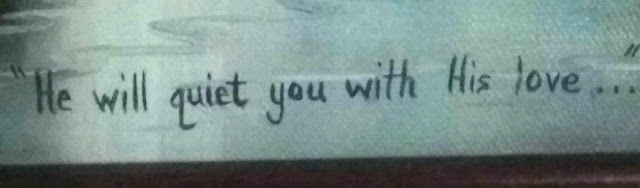 "He will quiet you with His love..."